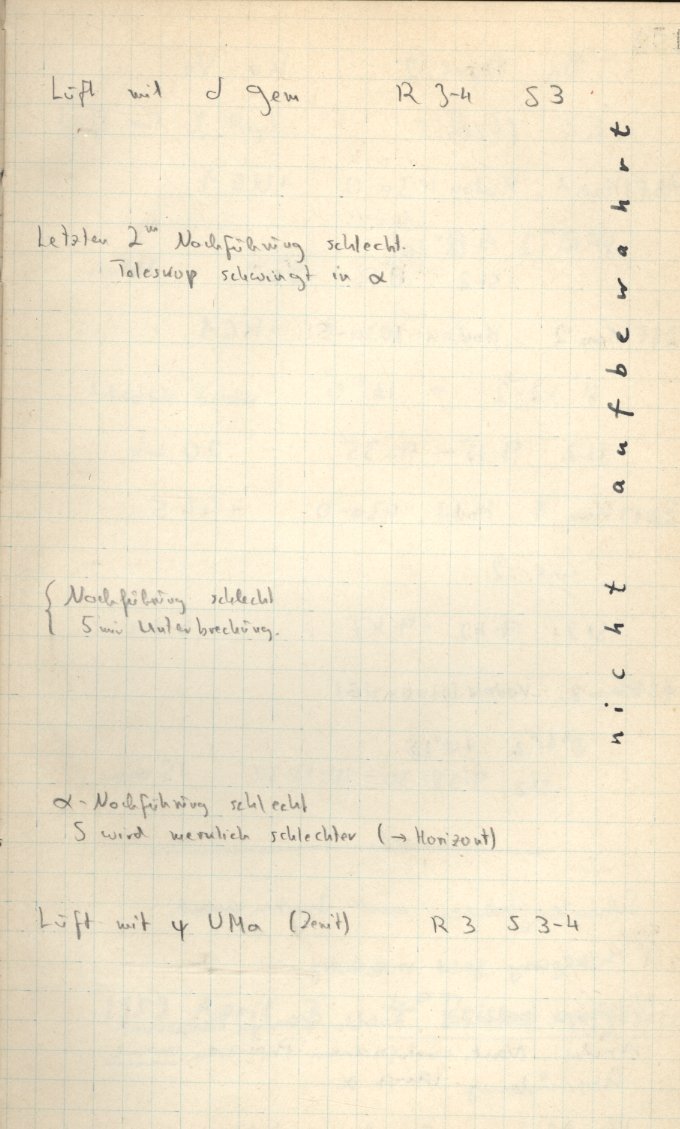 Lüft mit δ Gem R 3-4 S 3
Letzten 2ᵐ Nachführüng schlecht.
Teleskop schwingt in α
Nachführüng schlecht
5 min Unterbrechüng.
α-Nachführüng schlecht
S wird merklich schlechter (→ Horizont)
Lüft mit ψ UMa (Zenit) R 3 S 3-4
nicht aufbewahrt